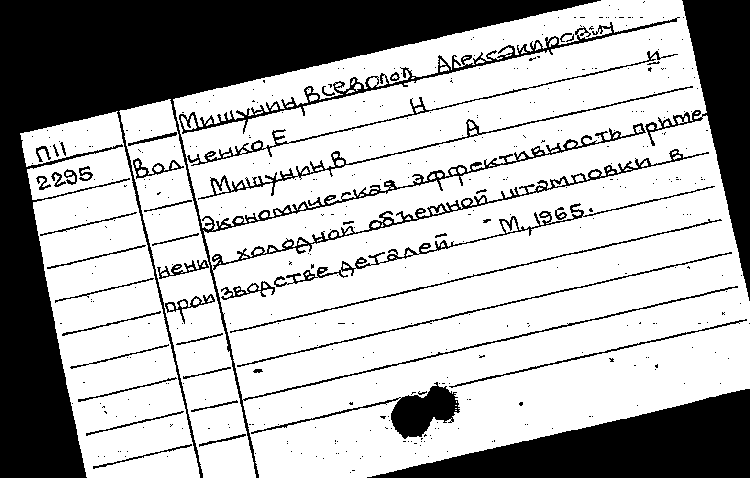 Мишунин, Всеволод Александрович
П11 Волченко, Е Н и
2295 Мишунин, В А
Экономическая эффективность приме-
нения холодной объемной штамповки в
производстве деталей. - М., 1965.